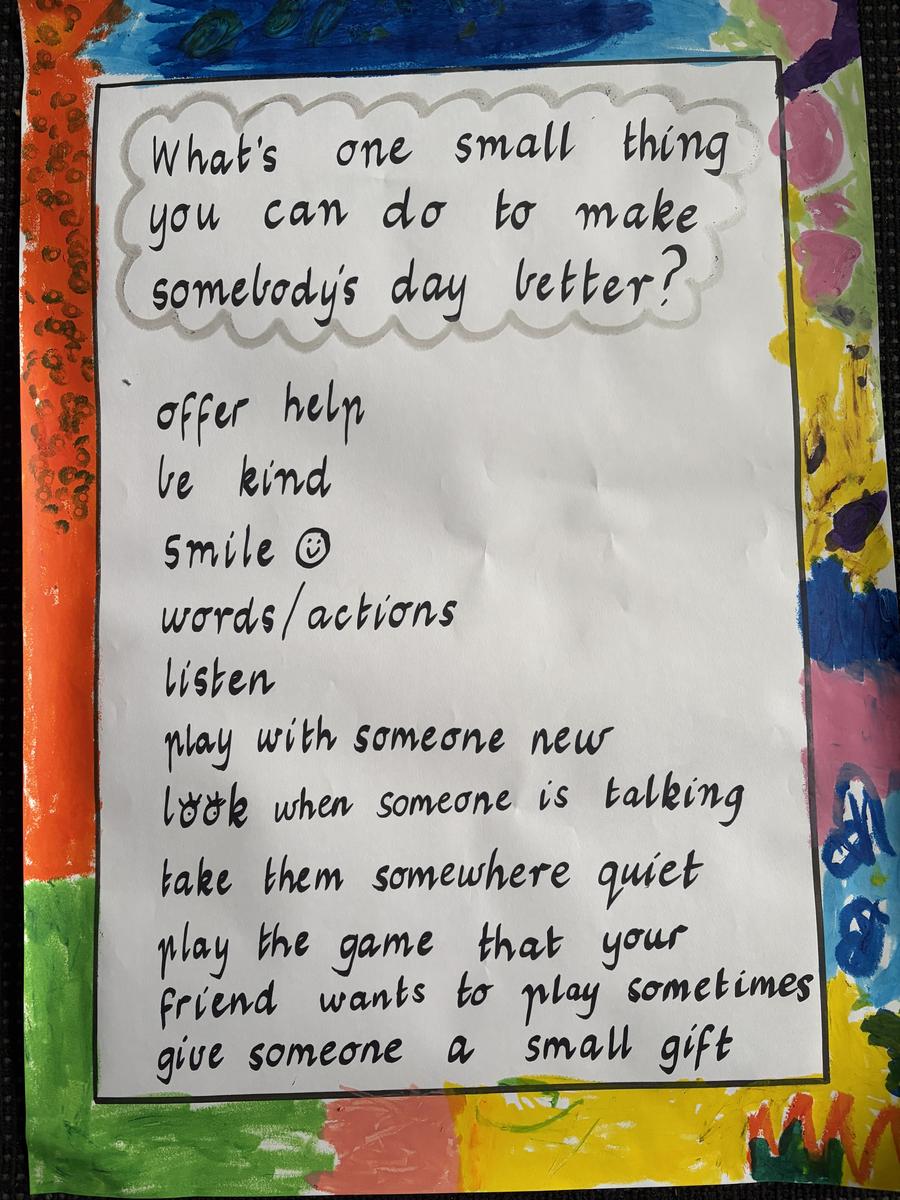 What's one small thing
you can do to make
somebody's day better?
offer help
be kind
smile
words/actions
listen
play with someone new
look when someone is talking
take them somewhere quiet
play the game that your
friend wants to play sometimes
give someone a small gift